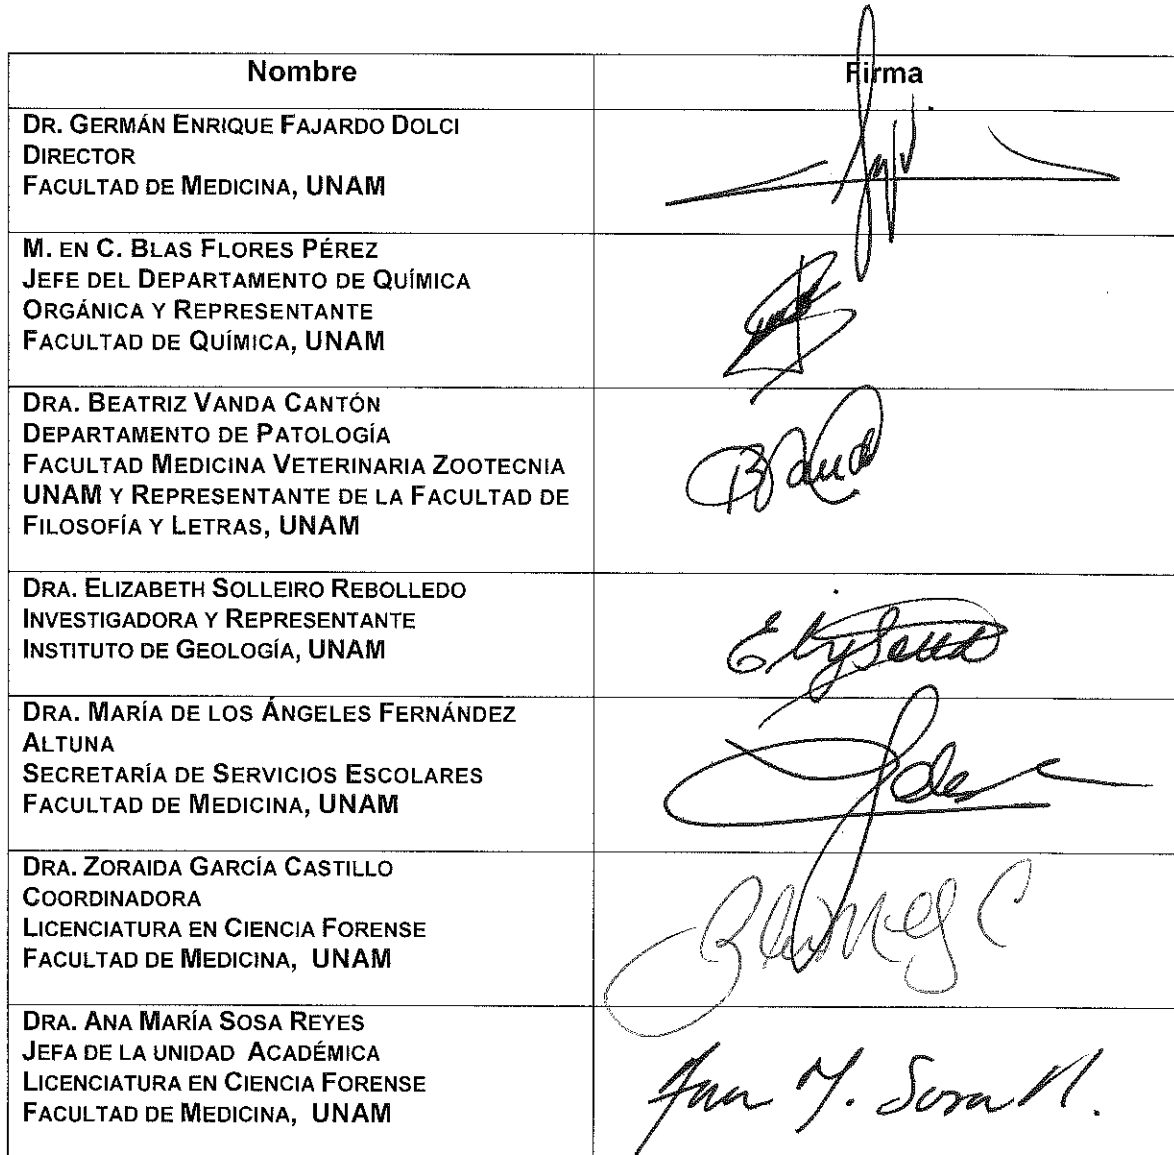 Nombre
Firma
DR. GERMÁN ENRIQUE FAJARDO DOLCI
DIRECTOR
FACULTAD DE MEDICINA, UNAM
M. EN C. BLAS FLORES PÉREZ
JEFE DEL DEPARTAMENTO DE QUÍMICA
ORGÁNICA Y REPRESENTANTE
FACULTAD DE QUÍMICA, UNAM
DRA. BEATRIZ VANDA CANTÓN
DEPARTAMENTO DE PATOLOGÍA
FACULTAD MEDICINA VETERINARIA ZOOTECNIA
UNAM Y REPRESENTANTE DE LA FACULTAD DE
FILOSOFÍA Y LETRAS, UNAM
DRA. ELIZABETH SOLLEIRO REBOLLEDO
INVESTIGADORA Y REPRESENTANTE
INSTITUTO DE GEOLOGÍA, UNAM
DRA. MARÍA DE LOS ÁNGELES FERNÁNDEZ
ALTUNA
SECRETARÍA DE SERVICIOS ESCOLARES
FACULTAD DE MEDICINA, UNAM
DRA. ZORAIDA GARCÍA CASTILLO
COORDINADORA
LICENCIATURA EN CIENCIA FORENSE
FACULTAD DE MEDICINA, UNAM
DRA. ANA MARÍA SOSA REYES
JEFA DE LA UNIDAD ACADÉMICA
LICENCIATURA EN CIENCIA FORENSE
FACULTAD DE MEDICINA, UNAM
Ana M. Sosa R.